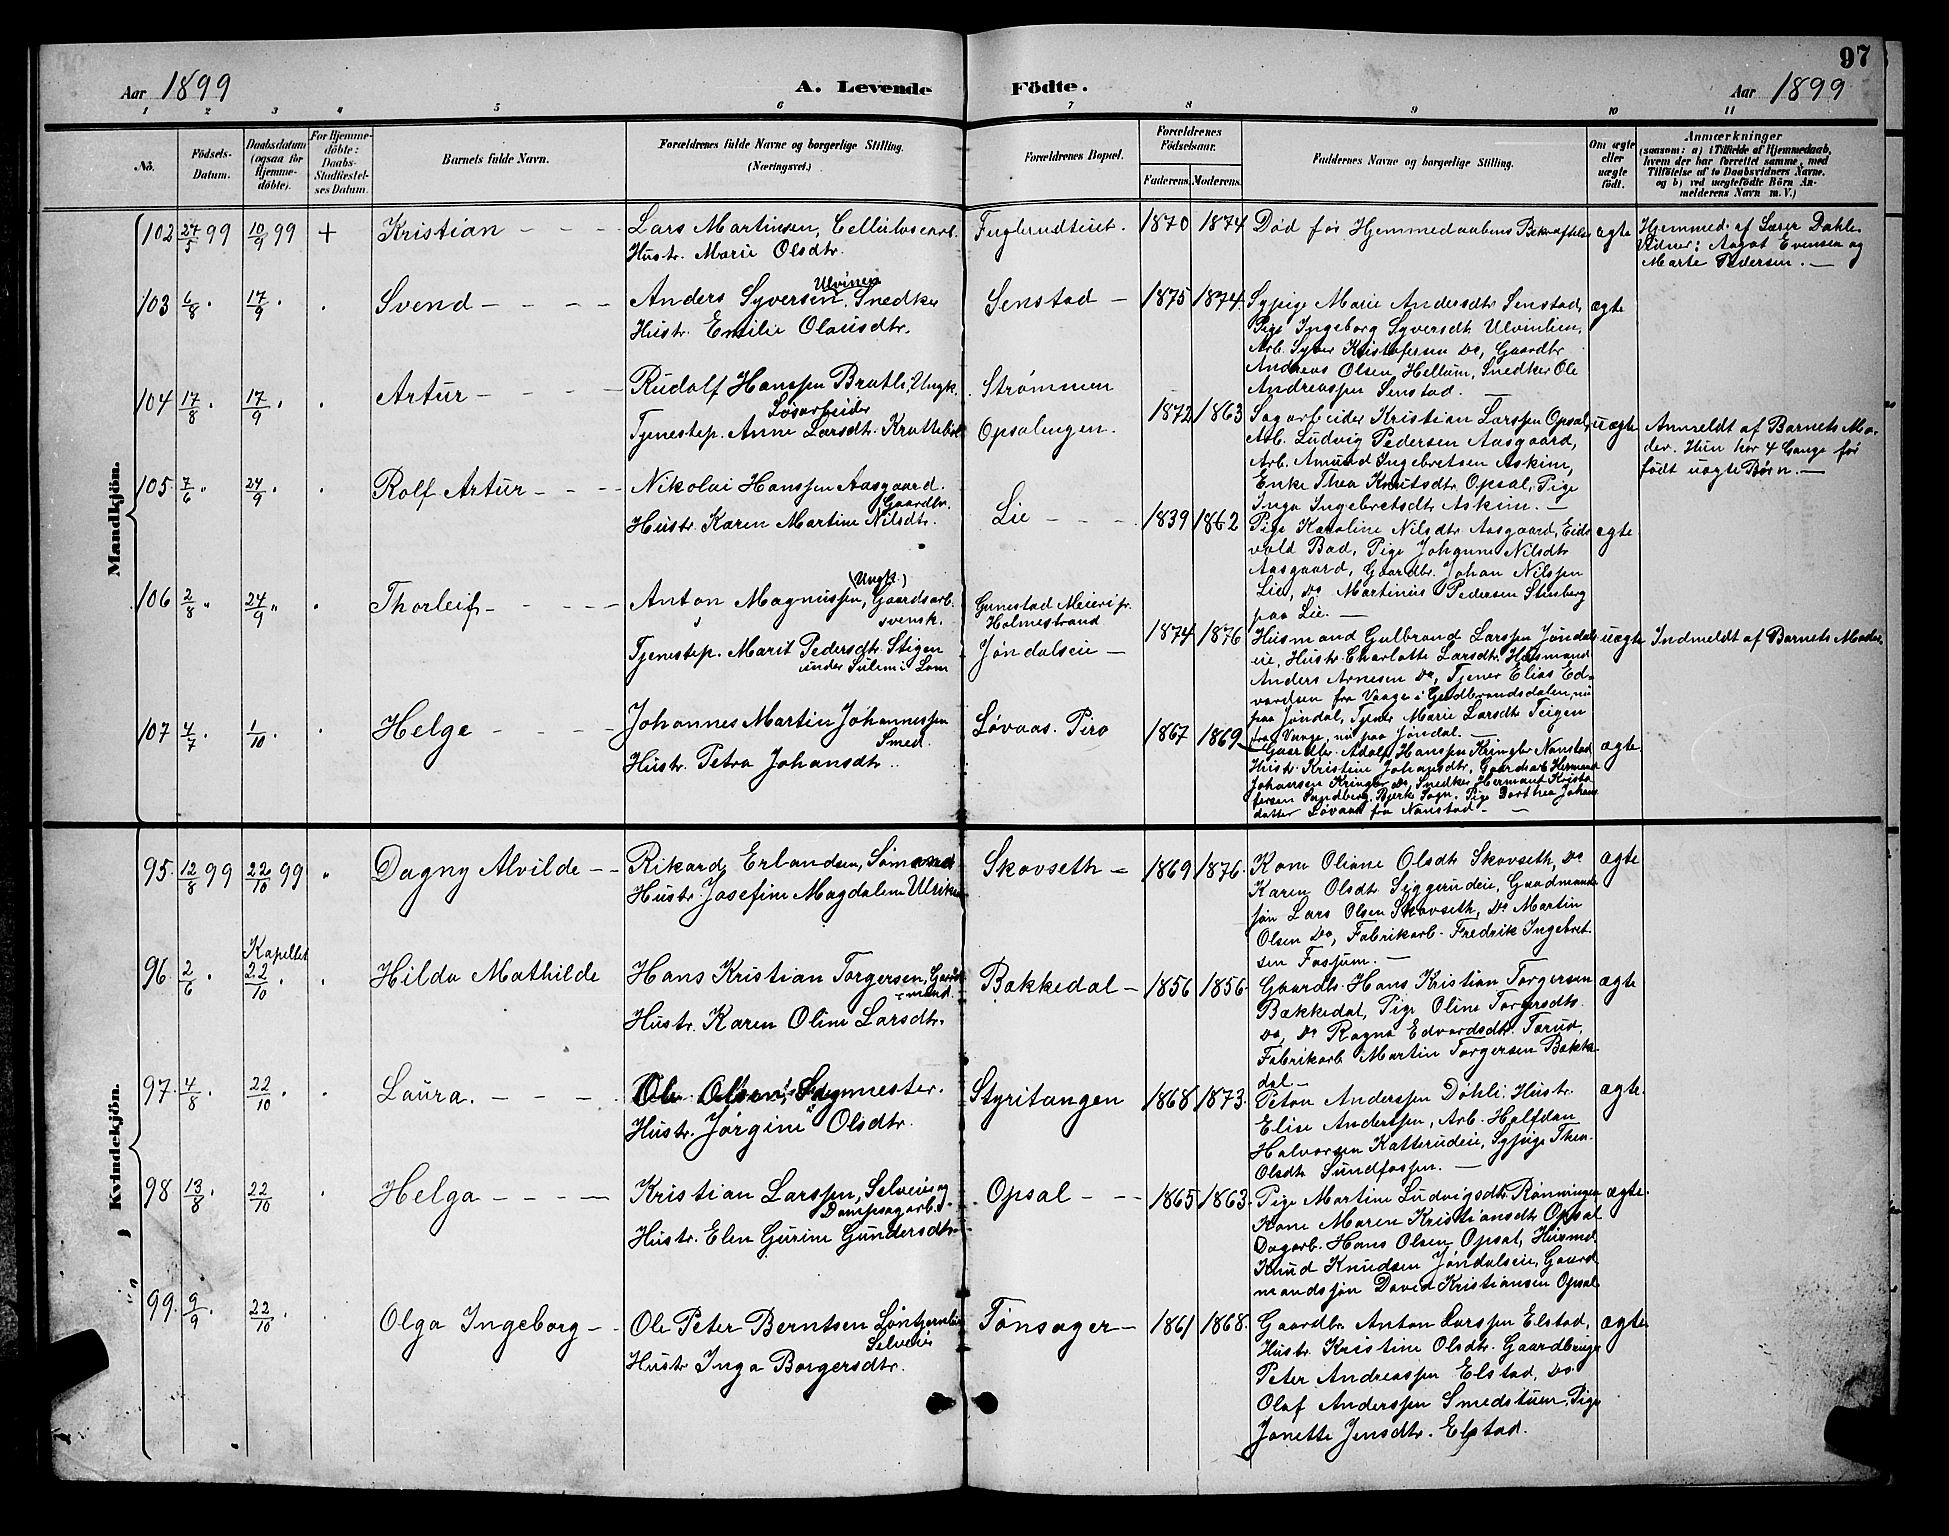 97
Aar 1899 A. Levende Födte. Aar 1899
1 2 3 4 5 6 7 8 9 10 11
No.
Födsels-Datum.
Daabsdatum (ogsaa for Hjemme-döbte).
For Hjemme-döbte: Daabs-Stadfæstel-ses Datum.
Barnets fulde Navn.
Forældrenes fulde Navne og borgerlige Stilling. (Næringsvei.)
Forældrenes Bopæl.
Forældrenes Födselsaar.
Faderens. Moderens.
Faddernes Navne og borgerlige Stilling.
Om ægte eller uægte födt.
Anmærkninger
(saasom: a) i Tilfælde af Hjemmedaab, hvem der har forrettet samme, med Tilföielse af to Daabsvidners Navne, og b) ved uægtefödte Börn An-melderens Navn m. V.)
Mandkjön.
102 27/5 99 10/9 99 + Kristian
Lars Martinsen, Cellulosearb.
Hustr. Marie Olsdtr.
Fuglundteiet. 1870 1874
Død før Hjemmedaabens Bekræftelse
ægte
Hjemmed. af Lærer Dahle
Vidner: Aagot Evensen og
Marte Pedersen.
103 6/8 17/9 Svend
Anders Syversen Ulvinen, Snedker
Hustr. Emilie Olausdtr.
Senstad 1875 1874
Sypige Marie Andersdtr Senstad,
Pige Ingeborg Syversdtr Ulvinlien,
Arb. Syver Kristofersen Do, Gaardbr
Andreas Olsen Hellum, Snedker Ole
Andreassen Senstad.
ægte
104 17/8 17/9 Artur
Rudolf Hanssen Bratli, Ungk.
Løsarbeider
Tjenestep. Anne Larsdtr.
Strømmen
Opsalengen. 1872 1863
Sagarbeider Kristian Larssen Opsal,
Arb. Ludvig Pedersen Aasgaard,
Arb. Amund Ingebretsen Askim,
Enke Thea Knutsdtr Opsal, Pige
Inga Ingebretsdtr Askim.
uægte
Anmeldt af Barnets Mo-
der. Hun har 4 Gange før
født uægte Børn.
105 7/6 24/9 Rolf Artur
Nikolai Hanssen Aasgaard.
Gaardbr.
Hustr. Karen Martine Nilsdtr.
Lie 1839 1862
Pige Karoline Nilsdtr Aasgaard, Eids
vold Bad, Pige Johanne Nilsdtr
Aasgaard, Gaardbr. Johan Nilssen
Lie, Do Martinus Pedersen Stensberg
paa Lie.
ægte
106 2/8 24/9 Thorleif
Anton Magnussen, (Ungk.) Gaardsarb.
svensk.
Tjenestep. Marit Pedersdtr. Stigen
under Sulem i Lom
Gunestad Meieri pr.
Holmestrand
Jøndalseie 1874 1876
Husmand Gulbrand Larssen Jøndals
eie, Hustr. Charlotte Larsdtr. Husmand
Anders Arnesen Do, Tjener Elias Ed-
vardsen fra Vaage i Gudbrandsdalen, nu
paa Jøndal, Tjener Marie Larsdtr Teigen
fra Vaage, nu paa Jøndal.
uægte
Indmeldt af Barnets Moder
107 4/7 1/10 Helge
Johannes Martin Johannessen
Smed.
Hustr. Petra Johansdtr.
Løvaas. Piro 1867 1869
Gaardbr. Adolf Hanssen Kringler Nanstad
Hustr. Kristine Johansdtr, Gaardsarb Herman
Johansen Kringler Do, Snedker Hermant Kristo
fersen Sundberg, Bjerke Sogn. Pige Dorthea Johans
datter Løvaas fra Nanstad
ægte
Kvindekjön.
95. 12/8 99 22/10 99 Dagny Alvilde
Rikard Erlandsen, Sømand
Hustr. Josefine Magdalene
Skovseth 1869 1876.
Kone Oliane Olsdtr Skovseth, Do
Karen Olsdtr Siggerudeie, Gaardmands
søn Lars Olsen Skovseth, Do Martin
Olsen Do, Fabrikarb. Fredrik Ingebret
sen Fossum.
ægte
96. 2/6 Kapellet 22/10 Hilda Mathilde
Hans Kristian Torgersen, Gaard
mand.
Hustr. Karen Oline Larsdtr.
Bakkedal 1856 1856
Gaardbr. Hans Kristian Torgersen
Bækkedal, Pige Oline Torgersdtr.
Do, Do Ragna Edvardsdtr. Torud,
Fabrikarb Martin Torgersen Bække
dal
ægte
97. 4/8 22/10 Laura.
Ole Olsen, Sagmester.
Hustr. Jørgine Olsdtr.
Styritangen 1868 1873.
Peton Anderssen Døhli. Hustr.
Elise Anderssen, Arb. Halfdan
Halvorsen Katterudeie, Sypige Thea
Olsdtr Sundfossen.
ægte
98 13/8 22/10 Helga
Kristian Larssen, Selveier og
Dampsagarb.
Hustr. Elen Gurine Gundersdtr
Opsal 1865 1863.
Pige Martine Ludvigsdtr. Rønningen
Kone Maren Kristiansdtr Opsal
Dagarb. Hans Olsen Opsal, Husmd
Knud Knudsen Jøndalseie, Gaard
mandssøn David Kristiansen Opsal
ægte
99. 9/9 22/10 Olga Ingeborg
Ole Peter Berntsen
Selveier
Hustr Inga Borgersdtr.
Tønsager 1861 1868.
Gaardbr. Anton Larssen Elstad,
Hustr. Kristine Olsdtr. Gaardbruger
Peter Andreassen Elstad, Do
Olaf Anderssen Smedstuen, Pige
Jonette Jensdtr. Elstad.
ægte